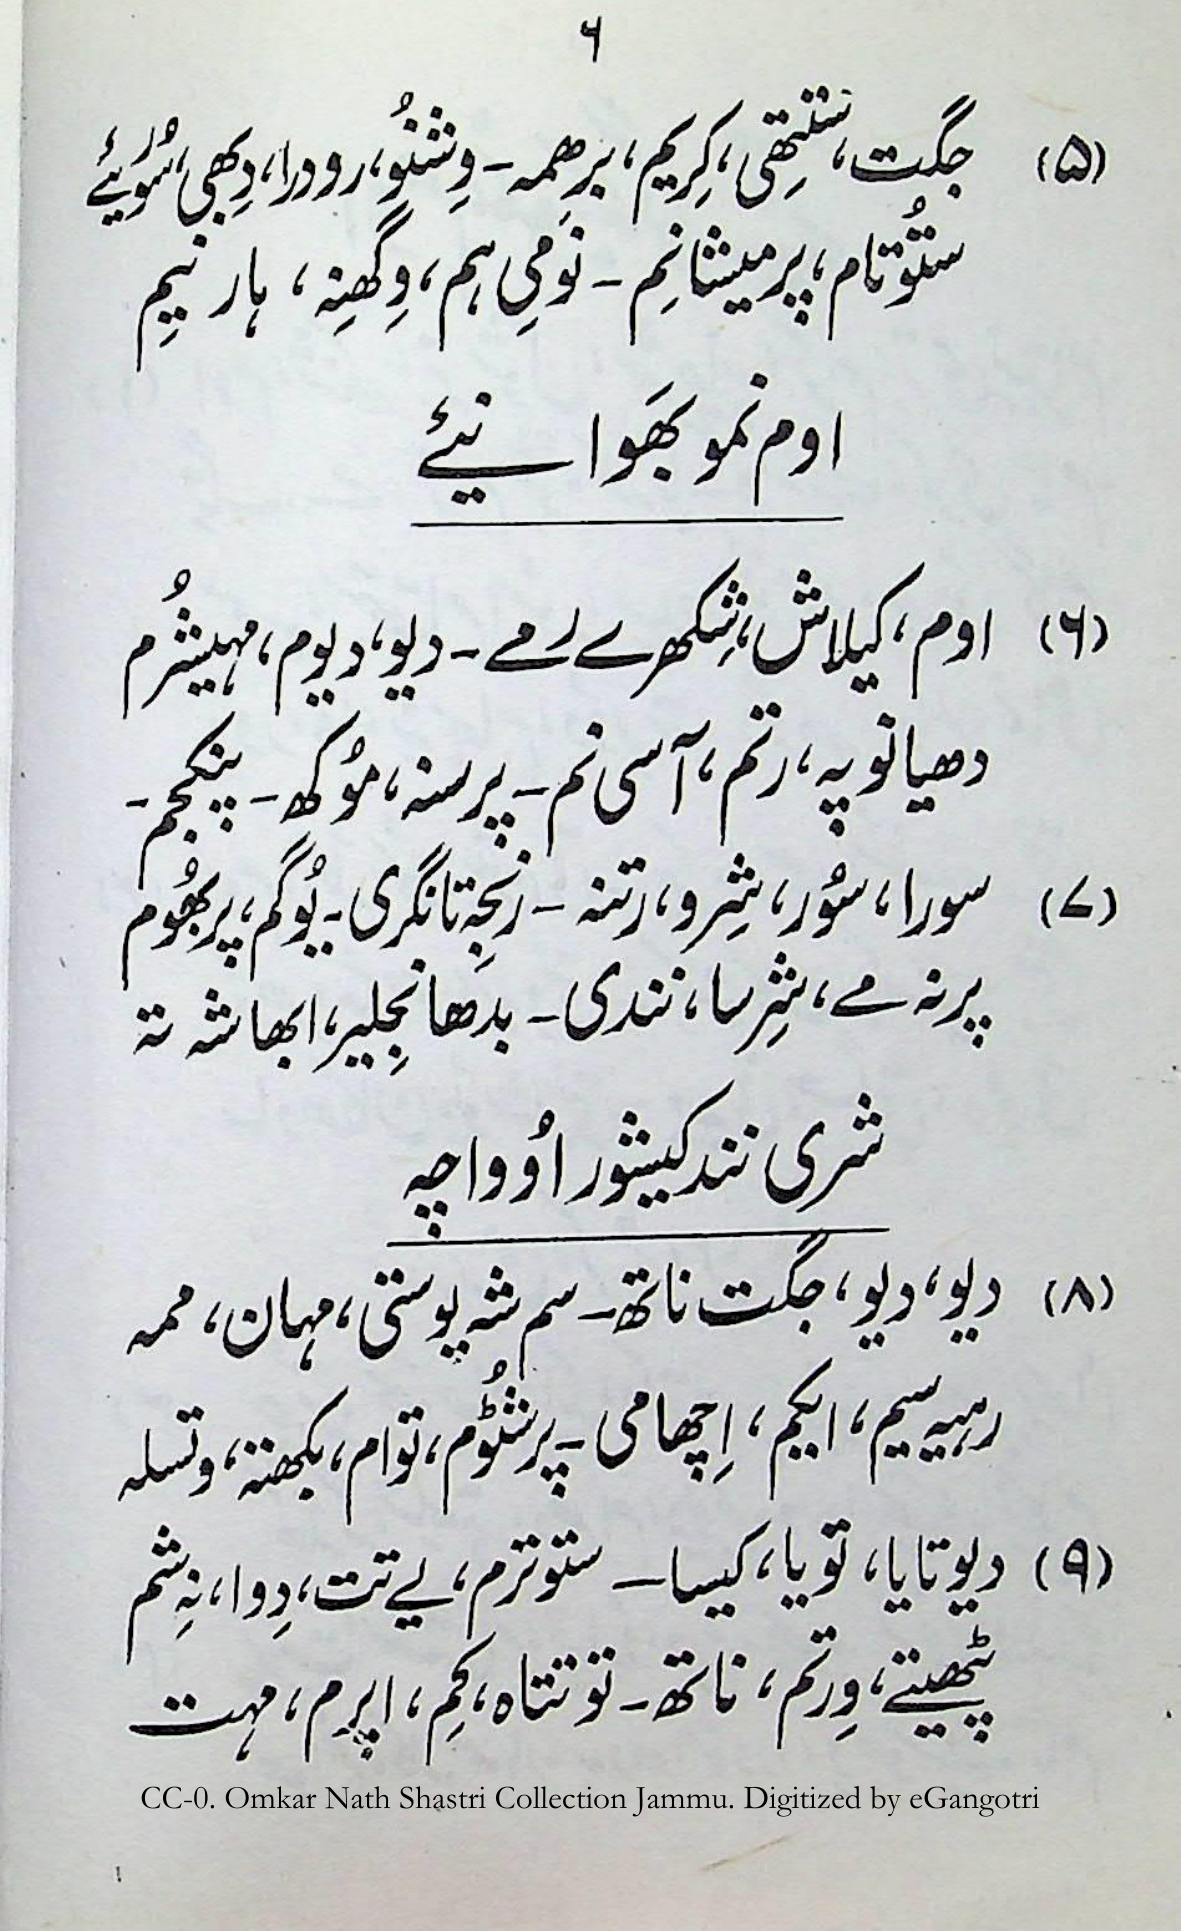 ۶
(۵) جگت، ستِتھی، کِریم، برھمہ - وِشنُو، رودرا، دِبھی، سُویئے
ستُوتام، پرمیشانِم - نَومیِ ہم، وِگھنِہ، ہار نیِم
اوم نمو بھَوانیئے
(۶) اوم، کیلاش، شِکھرے رمے - دیو، دیوم، مہیشُرم
دھیانو پہ، رتم، آسی نم - پرسنہ، مُوکھ - پنکجم -
(۷) سورا، سُور، شِرو، رتنہ - رنجِہ تانگری - یُوگم، پربھُوم
پرنہ مے، شِرسا، نندی - بدھانجِلیر، ابھاشہ تہ
شری نندکیشور اُوواچہ
(۸) دیو، دیو، جگت ناتھ - سم شہ یوستی، مہان، ممہ
رہیہ سیم، ایکم، اِچھامی - پرشٹُوم، توام، بکھتہ، وتسلہ
(۹) دیوتایا، تویا، کیسا - ستوترم، یے تت، دِوا، نِہ شم
پٹھیتے، وِرتم، ناتھ - تو تتاہ، کمِ، اپرم، مہت
CC-0. Omkar Nath Shastri Collection Jammu. Digitized by eGangotri